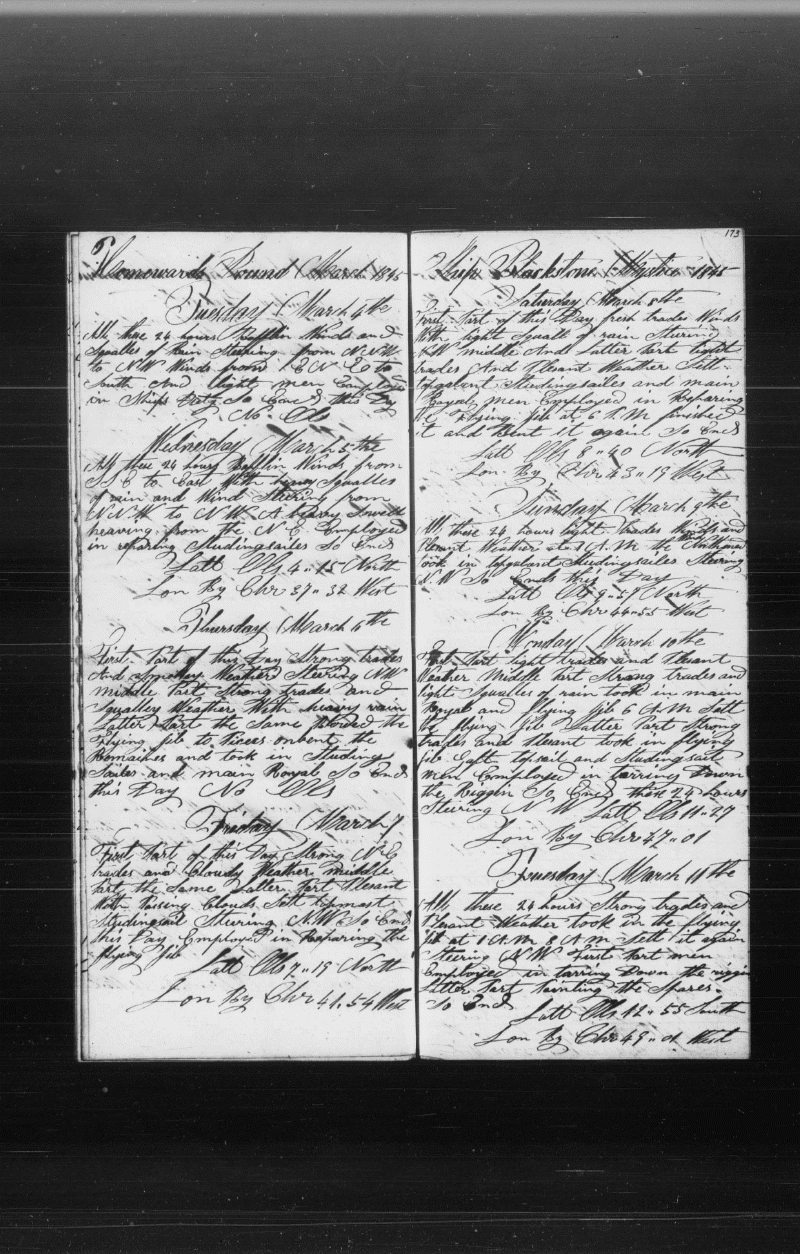 Homewards Bound March 1845
Tuesday March 4th
All these 24 hours Bafflin Winds and
Squalls of Rain Steering from NNW
to NW Winds from ENE to
South And light men Employed
on Ships Duty So Ends this Day
No Obs
Wednesday March 5 the
All these 24 hours Bafflin Winds from
SSE to East With heavy Squalles
of rain and Wind Steering from
NNW to NW A heavy Swell
heaving from the NE Employed
in repairing Studingsailes So Ends
Latt Obs 4 " 15 North
Lon By Chr 37 " 32 West
Thursday March 6 the
First Part of this Day Strong trades
And Smokey Weather Steering NW
middle Part Strong trades and
Squalley Weather With heavy rain
Latter Part the Same Blowed the
Flying jib to Pieces onbent the
Romaines and took in Studing
Sailes and main Royal So Ends
this Day No Obs
Friday March 7
First Part of this Day Strong NE
trades and Cloudy Weather middle
Part the Same Latter Part Plesant
With Passing Clouds Sett topmast
Studingsail Steering NW So Ends
this Day Employed in Reparing the
flying jib
Latt Obs 7 " 19 North
Lon By Chr 41 " 54 West
173
Ship Blackstone Mystic 1845
Saturday March 8 the
First Part of this Day fresh trades Winds
With light Squalls of rain Steering
NW middle And Latter Part light
trades And Plesant Weather Sett
topgalant Studingsailes and main
Royal men Employed in Reparing
the Flying jib at 6 P.M finished
it and Bent it again So Ends
Latt Obs 8 " 40 North
Lon By Chr 43 " 19 West
Sunday March 9 the
All these 24 hours light trades Winds and
Plesant Weather at 1 A.M the
took in topgalant Studingsailes Steering
NW So Ends this Day
Latt Obs 9 " 59 North
Lon By Chr 44 " 55 West
Monday March 10 the
First Part light trades and Plesant
Weather Middle Part Strong trades and
light Squalles of rain took in main
Royal and flying jib 6 A.M Sett
the flying jib Latter Part Strong
trades and Plesant took in flying
jib Gaft topsail and Studingsail
men Employed in tarring Down
the Riggen So Ends these 24 hours
Steering NW Latt Obs 11 " 27
Lon By Chr 47 " 01
Tuesday March 11 the
All these 24 hours Strong trades and
Plesant Weather took in the flying
jib at 1 A.M 8 A.M Sett it again
Steering NW First Part men
Employed in tarring Down the riggin
Latter Part Painting the Spares
So Ends
Latt Obs 12 " 55 South
Lon By Chr 49 " 01 West